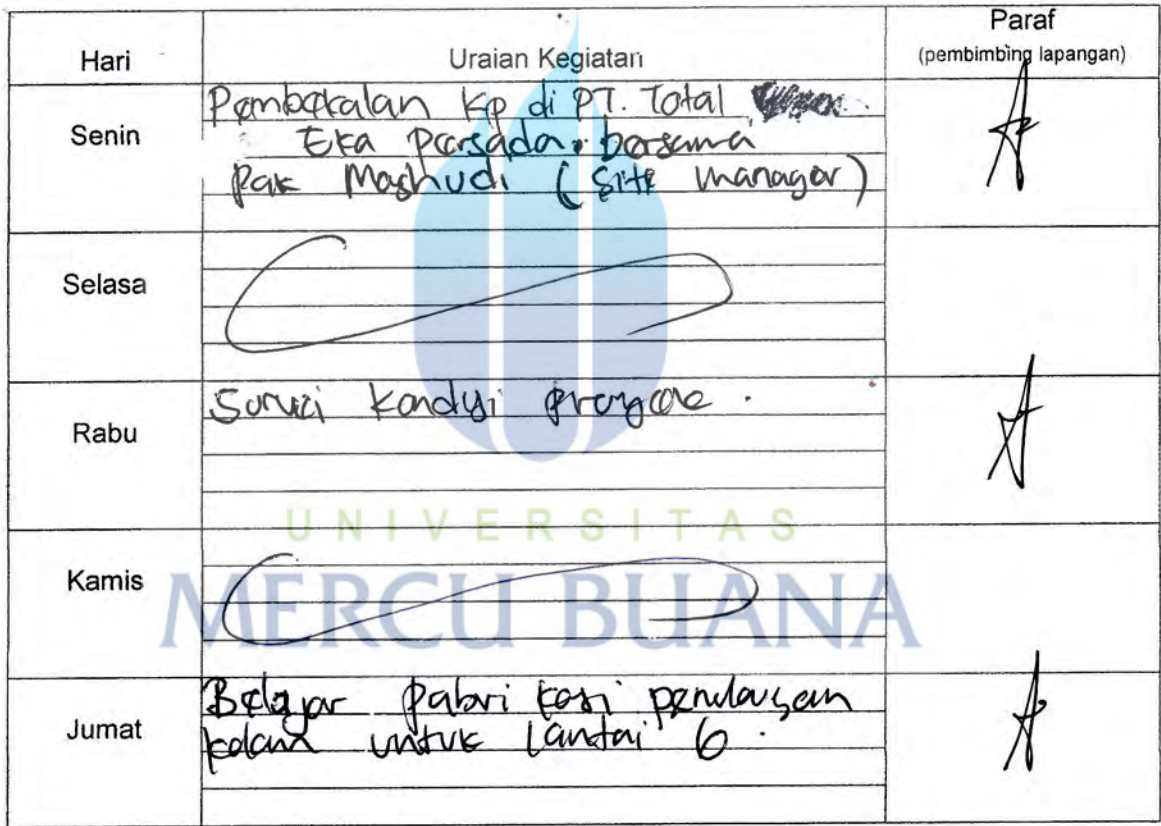 Hari
Uraian Kegiatan
Paraf
(pembimbing lapangan)
Senin
Pembekalan Kp di PT. Total
Eka Persada. bersama
Pak Mashudi (Site manager)
Selasa
Rabu
Survei kondisi proyek.
Kamis
Jumat
Belajar pabrikasi
kolam untuk lantai 6.
UNIVERSITAS
MERCU BUANA